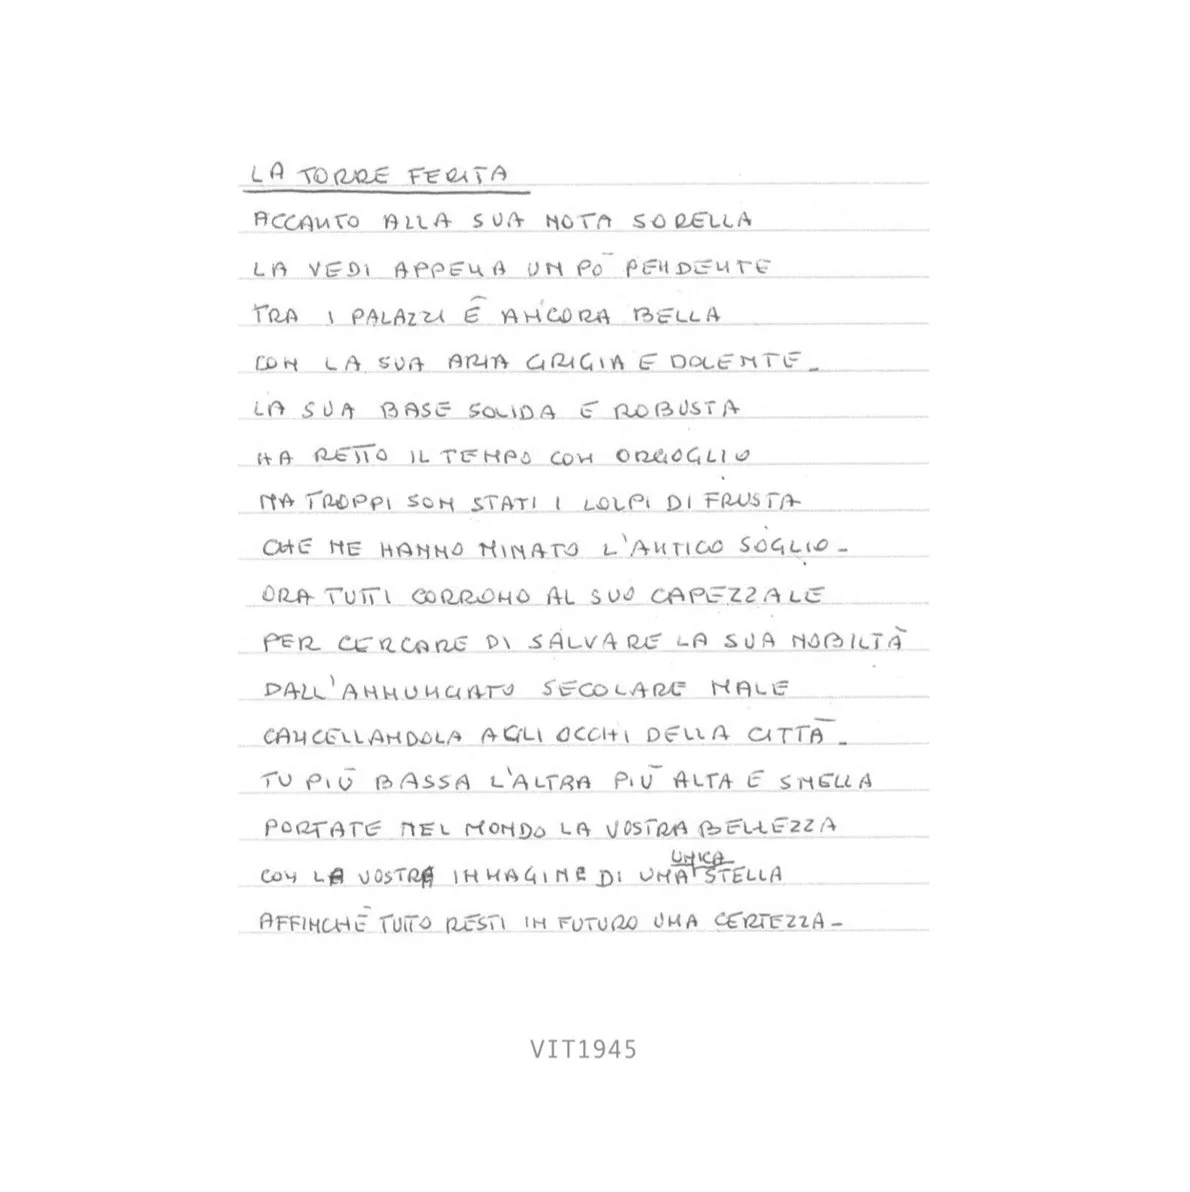 LA TORRE FERITA
ACCANTO ALLA SUA NOTA SORELLA
LA VEDI APPENA UN PÒ PENDENTE
TRA I PALAZZI È ANCORA BELLA
CON LA SUA ARIA GRIGIA E DOLENTE_
LA SUA BASE SOLIDA E ROBUSTA
HA RETTO IL TEMPO CON ORGOGLIO
MA TROPPI SON STATI I COLPI DI FRUSTA
CHE NE HANNO MINATO L'ANTICO SOGLIO_
ORA TUTTI CORRONO AL SUO CAPEZZALE
PER CERCARE DI SALVARE LA SUA NOBILTÀ
DALL'ANNUNCIATO SECOLARE MALE
CANCELLANDOLA AGLI OCCHI DELLA CITTÀ_
TU PIÙ BASSA L'ALTRA PIÙ ALTA E SNELLA
PORTATE NEL MONDO LA VOSTRA BELLEZZA
CON LA VOSTRA IMMAGINE DI UNA UNICA STELLA
AFFINCHÈ TUTTO RESTI IN FUTURO UNA CERTEZZA_
VIT1945